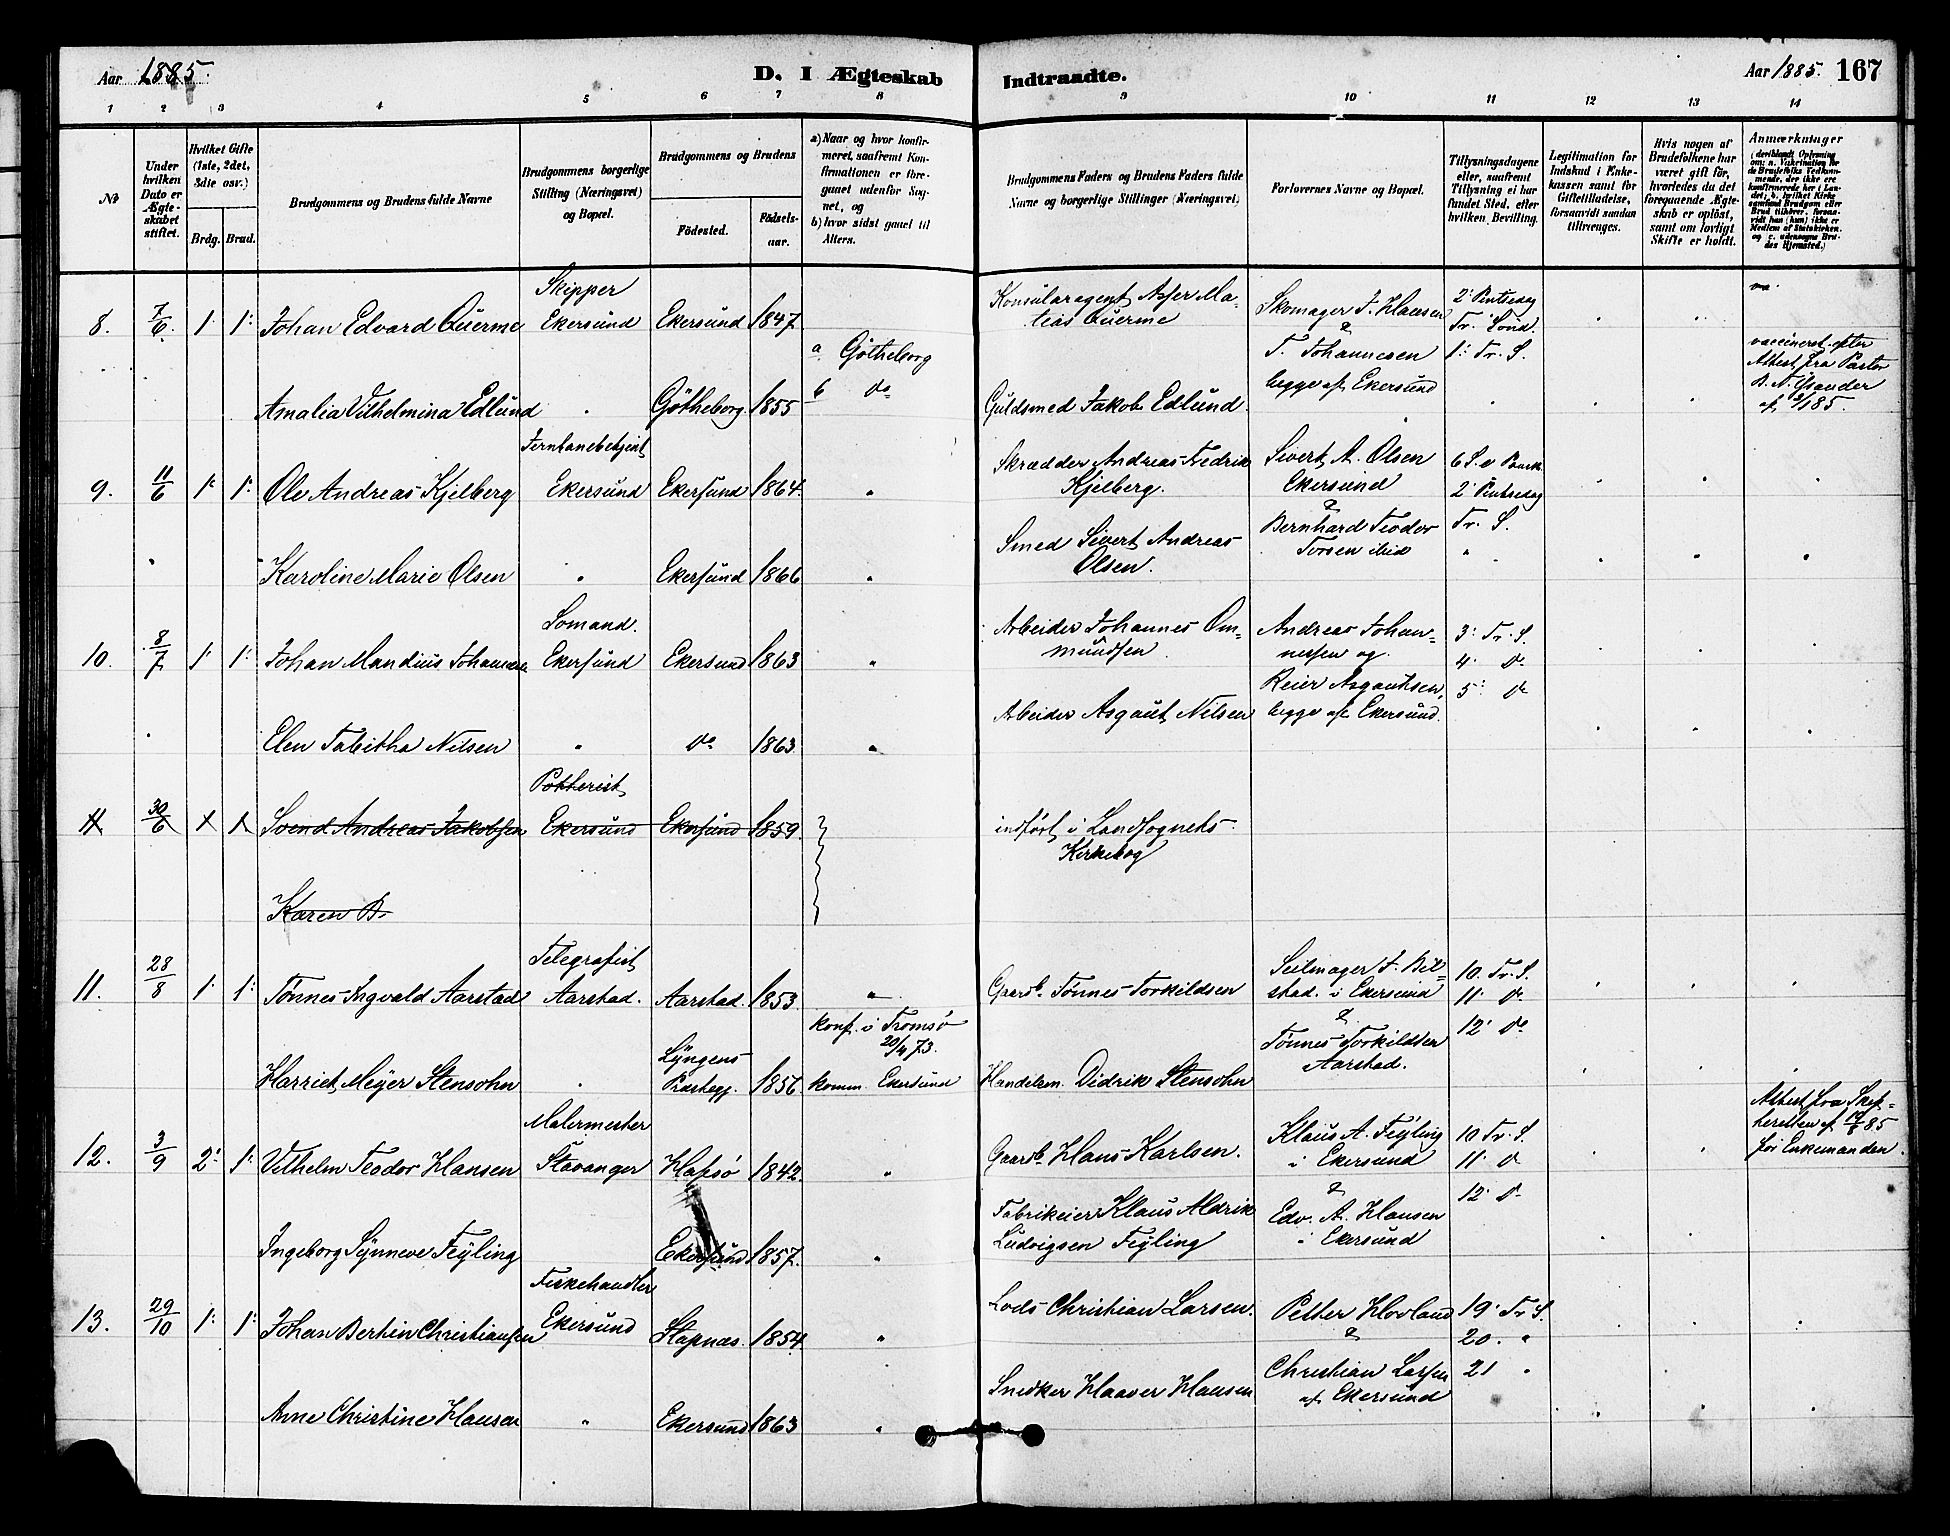 Aar 1885.
D. I Ægteskab Indtraadte.
Aar 1885. 167
1 2 3 4 5 6 7 8 9 10 11 12 13 14
No
Under hvilken Dato er Ægteskabet stiftet.
Hvilket Gifte (1ste, 2det, 3die osv.)
Brdg. Brud.
Brudgommens og Brudens fulde Navne
Brudgommens borgerlige Stilling (Næringsvei) og Bopæl.
Brudgommens og Brudens
Fødested. Fødselsaar.
a) Naar og hvor konfirmeret, saafremt Konfirmationen er foregaaet udenfor Sognet, og
b) hvor sidst gaaet til Alters.
Brudgommens Faders og Brudens Faders fulde Navne og borgerlige Stillinger (Næringsvei)
Forlovernes Navne og Bopæl.
Tillysningsdagene eller, saafremt Tillysning ei har fundet Sted, efter hvilken Bevilling.
Legitimation for Indskud i Enkekassen samt for Giftetilladelse, forsaavidt saadan tiltrænges.
Hvis nogen af Brudefolkene har været gift før, hvorledes da det foregaaende Ægteskab er opløst, samt om lovligt Skifte er holdt.
Anmærkninger
(deriblandt Oplysning om: a. Vaksination for de Brudefolks Vedkommende, der ikke ere konfirmerede her i Landet, b. hvilket Kirkesamfund Brudgom eller Brud tilhører, forsaavidt han (hun) ikke er Medlem af Statskirken, og c. udensogns Brudes Hjemsted.)
8. 7/6. 1. 1. Johan Edvard Querme
Skipper
Ekersund Ekersund 1847.
Konsularagent Asser Ma-
tias Querme
Skomager J. Hansen
&
T. Johannesen
begge af Ekersund
2' Pintsedag
Tr. Sönd.
1: Tr. S.
Amalia Vilhelmina Edlund Götheborg. 1855
a Götheborg
b do
Guldsmed Jakob Edlund.
vaccineret efter
Attest fra Pastor
9. 11/6 1. 1. Ole Andreas Kjelberg
Jernbanebetjent
Ekersund Ekersund 1864.
Skrædder Andreas Fredrik
Kjelberg.
Sivert A. Olsen
Ekersund
&
Bernhard Teodor
Torsen ibid
6 S. e Paaske
2' Pintsedag
Tr. S.
Karoline Marie Olsen Ekersund 1866
Smed Sivert Andreas
Olsen.
10. 8/7 1. 1. Johan Mandius Johannesen
Sømand.
Ekersund Ekersund 1863
Arbeider Johannes Om-
mundsen.
Andreas Johan-
nessen og
Reier Asgautsen,
begge af Ekersund.
3: Tr. S.
4. do
5: do
Elen Tabitha Nilsen do 1863
Arbeider Asgaut Nilsen
11 30/6 1 1 Svend Andreas Jakobsen
Potterist
Ekersund Ekersund 1859.
indført i Landsognets
Kirkebog
Karen B.
11. 28/8 1. 1. Tönnes Ingvald Aarstad
Telegrafist
Aarstad. Aarstad. 1853
Gaardb. Tönnes Torkildsen
Seilmager J. Bil-
stad. i Ekersund
&
Tönnes Torkildsen
Aarstad.
10. Tr. S.
11. do
12. do
Harriet Meyer Stensohn
Lyngens
Præstegj. 1856.
konf. i Tromsö
20/4 73.
komm. Ekersund
Handelsm. Didrik Stensohn
12. 3/9 2. 1. Vilhelm Teodor Hansen
Malermester
Stavanger Hafsø 1842.
Gaardb. Hans Karlsen.
Klaus A. Feyling
i Ekersund
&
Edv. A. Hansen
i Ekersund
10 Tr. S.
11. do
12. do
Attest fra Skif-
teretten af 14/8 85
for Enkemanden.
Ingeborg Synneve Feyling Ekersund 1857.
Fabrikeier Klaus Aldrik
Ludvigsen Feyling
13. 29/10 1. 1. Johan Bertin Christiansen
Fiskehandler
Ekersund Stapnæs. 1854.
Lods Christian Larsen.
Petter Hovland
&
Christian Larsen
af Ekersund
19. Tr. S.
20. "
21 "
Anne Christine Hansen Ekersund 1863
Snedker Haaver Hansen